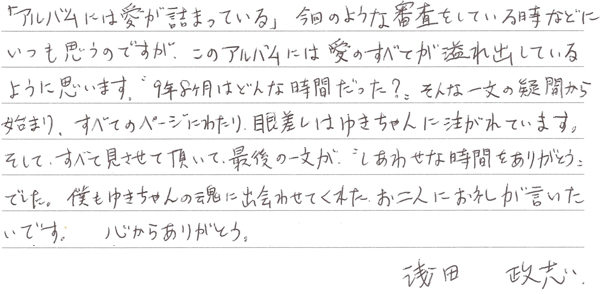 「アルバムには愛が詰まっている」今回のような審査をしている時などに
いつも思うのですが、このアルバムには愛のすべてが溢れ出している
ように思います。“9年8ヶ月はどんな時間だった？„そんな一文の疑問から
始まり、すべてのページにわたり、眼差しはゆきちゃんに注がれています。
そして、すべて見させて頂いて、最後の一文が、“しあわせな時間をありがとう„
でした。僕もゆきちゃんの魂に出会わせてくれた、お二人にお礼が言いた
いです。　心からありがとう。
浅田　政志